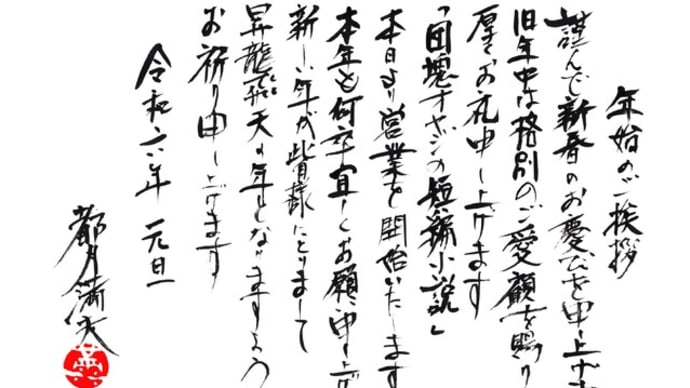 年始のご挨拶
謹んで新春のお慶びを申し上げ
旧年中は格別のご愛顧を賜り
厚くお礼申し上げます
「団塊オヤジの短編小説」
本日より営業を開始いたします
本年も何卒宜しくお願い申し上げ
新しい年が皆様にとりまして
昇龍飛天の年となりますよう
お祈り申し上げます
令和六年 元旦